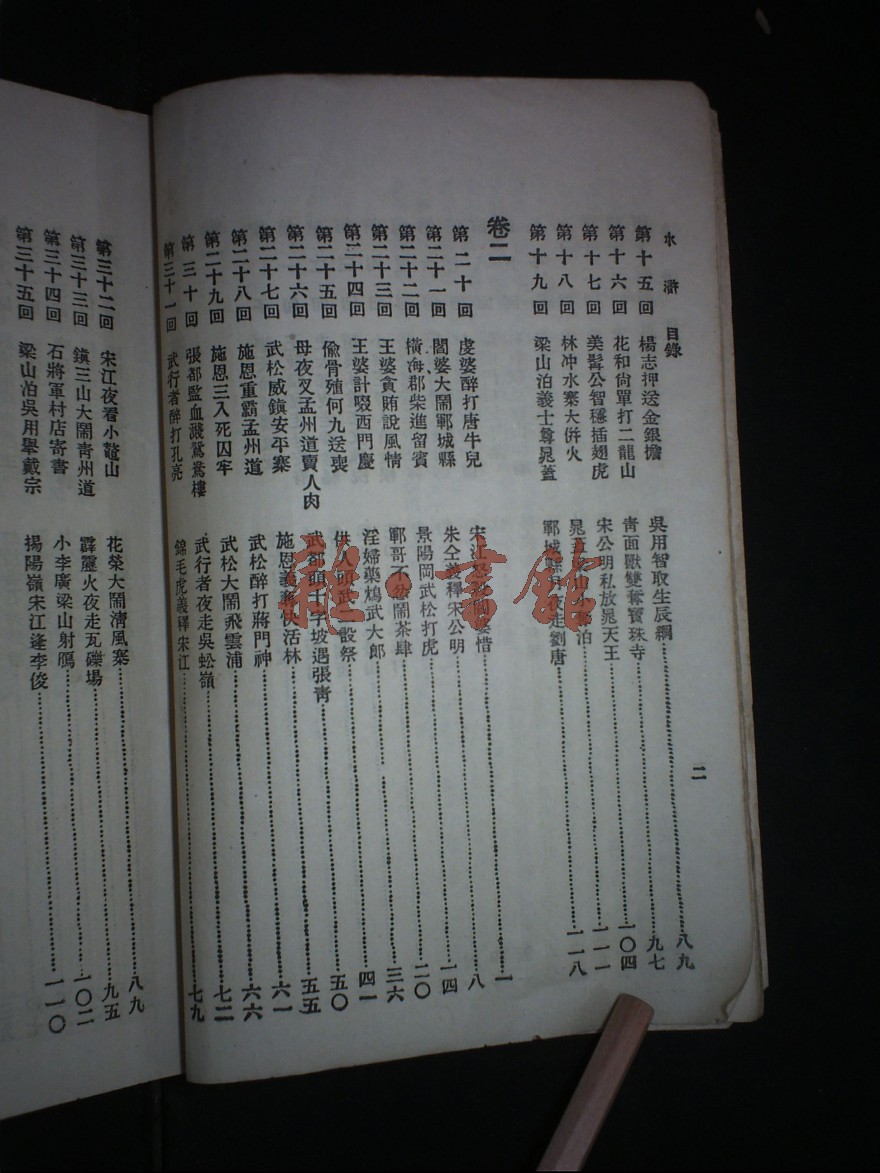 水滸 目錄
二
第十五回 楊志押送金銀擔 吳用智取生辰綱 八九
第十六回 花和尙單打二龍山 靑面獸雙奪寶珠寺 九七
第十七回 美髯公智穩插翅虎 宋公明私放晁天王 一〇四
第十八回 林冲水寨大併火 晁 山 泊 一一一
第十九回 梁山泊義士尊晁蓋 鄆城縣月夜走劉唐 一一八
卷二
第二十回 虔婆醉打唐牛兒 宋江怒 婆惜 一
第二十一回 閻婆大鬧鄆城縣 朱仝義釋宋公明 八
第二十二回 橫海郡柴進留賓 景陽岡武松打虎 一四
第二十三回 王婆貪賄說風情 鄆哥不忿鬧茶肆 二〇
第二十四回 王婆計啜西門慶 淫婦藥鴆武大郎 三六
第二十五回 偸骨殖何九送喪 供人頭武二設祭 四一
第二十六回 母夜叉孟州道賣人肉 武都頭十字坡遇張靑 五〇
第二十七回 武松威鎭安平寨 施恩義奪快活林 五五
第二十八回 施恩重霸孟州道 武松醉打蔣門神 六一
第二十九回 施恩三入死囚牢 武松大鬧飛雲浦 六六
第三十回 張都監血濺鴛鴦樓 武行者夜走吳蚣嶺 七二
第三十一回 武行者醉打孔亮 錦毛虎義釋宋江 七九
第三十二回 宋江夜看小鼇山 花榮大鬧淸風寨 八九
第三十三回 鎭三山大鬧靑州道 霹靂火夜走瓦礫場 九五
第三十四回 石將軍村店寄書 小李廣梁山射鴈 一〇二
第三十五回 梁山泊吳用舉戴宗 揭陽嶺宋江逢李俊 一一〇
雜·書館